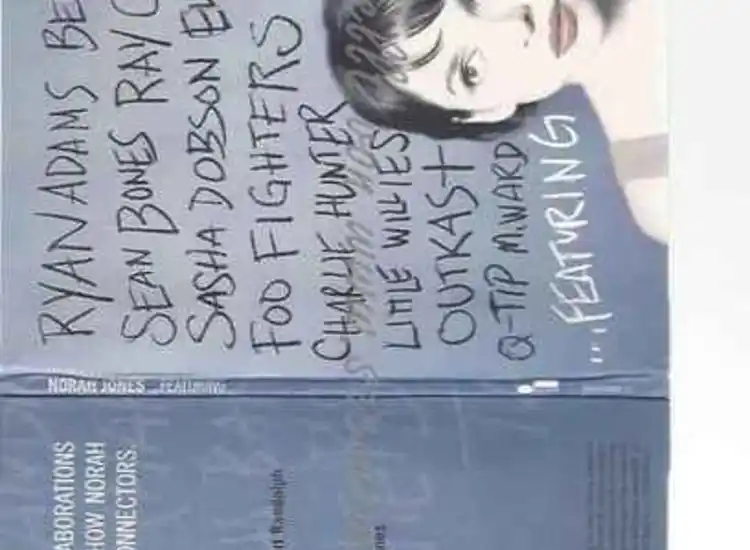 RYAN ADAMS BE
SEAN BONES RAY C
SASHA DOBSON EL
FOO FIGHTERS
CHARLIE HUNTER
LITTLE WILLIES
OUTKAST
Q-TIP M.WARD
...FEATURING
NORAH JONES ...FEATURING
ABORATIONS
HOW NORAH
ONNECTORS.
rt Randolph
nes